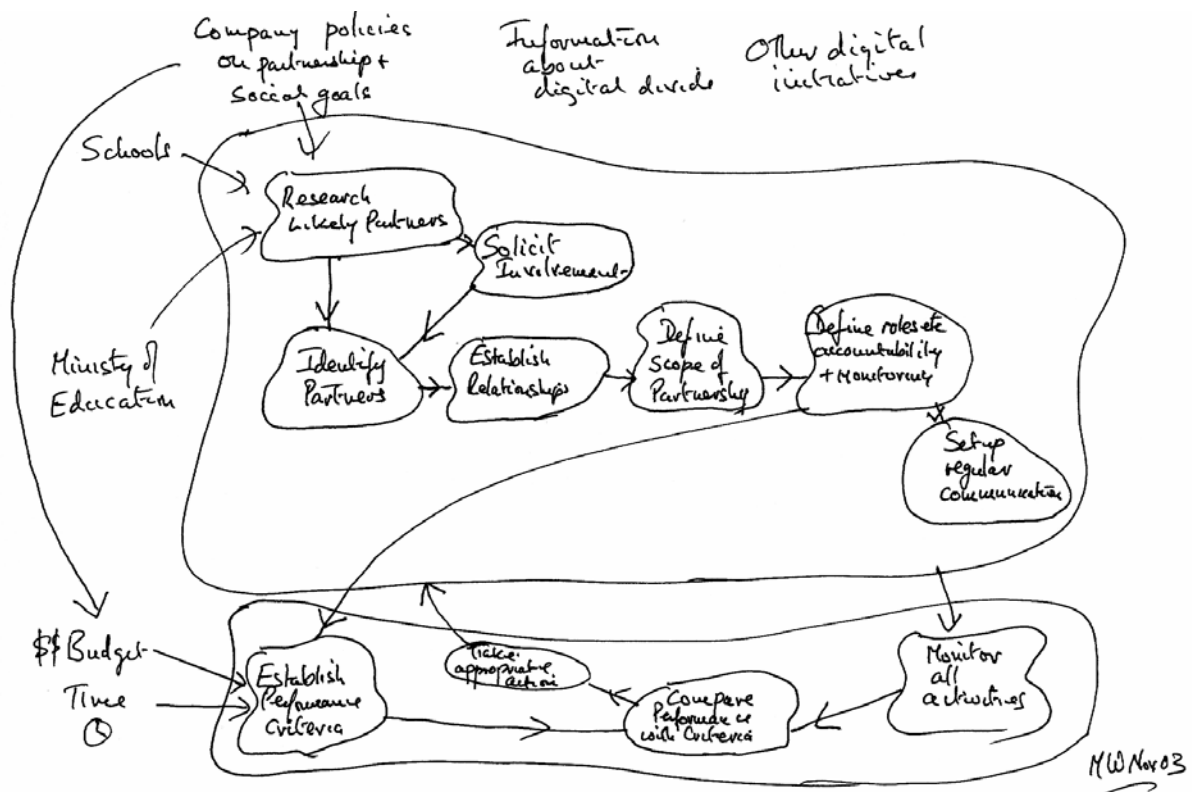 Company policies
on partnership +
social goals
Information
about
digital divide
Other digital
initiatives
Schools
Research
Likely Partners
Solicit
Involvement
Ministry of
Education
Identify
Partners
Establish
Relationships
Define
Scope of
Partnership
Define roles etc
accountability
+ Monitoring
Setup
regular
communication
$$ Budget
Time
Establish
Performance
Criteria
Take
appropriate
action
Compare
Performance
with Criteria
Monitor
all
activities
MW Nov 03